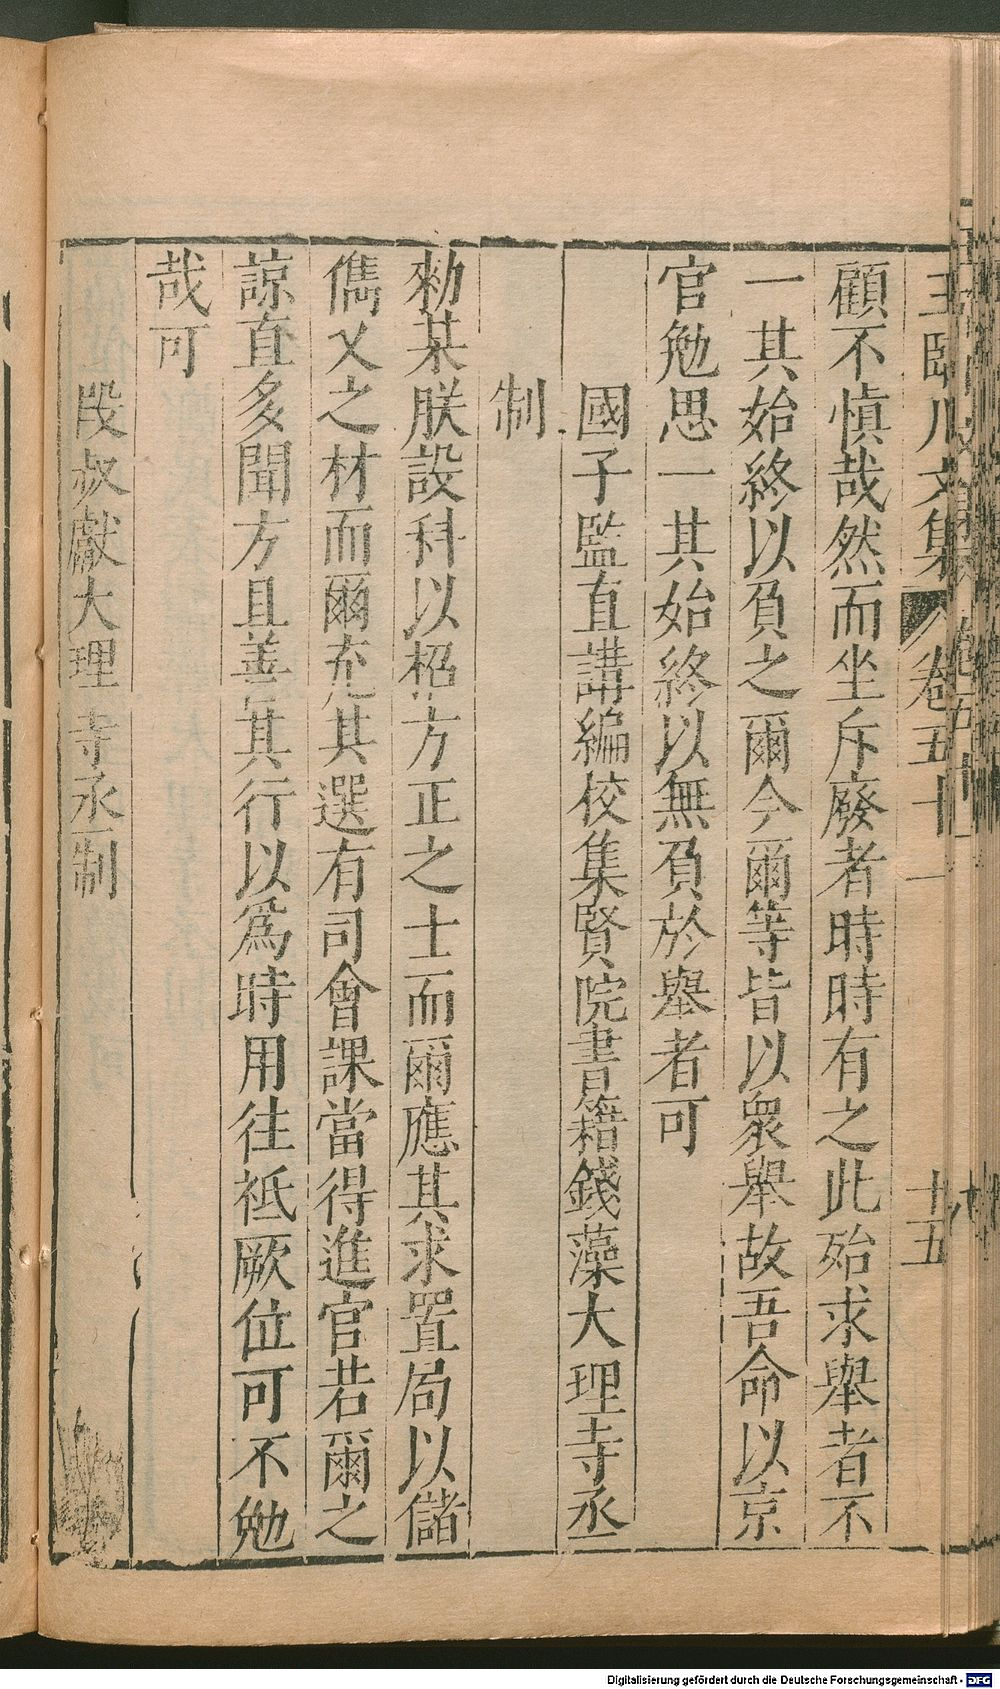 王臨川文集 卷五十一 十五
顧不慎哉然而坐斥廢者時時有之此殆求舉者不
一其始終以負之爾今爾等皆以衆舉故吾命以京
官勉思一其始終以無負於舉者可
國子監直講編校集賢院書籍錢藻大理寺丞
制
勑某朕設科以招方正之士而爾應其求置局以儲
儁乂之材而爾充其選有司會課當得進官若爾之
諒直多聞方且善其行以爲時用往祗厥位可不勉
哉可
段叔獻大理寺丞制
Digitalisierung gefördert durch die Deutsche Forschungsgemeinschaft - DFG